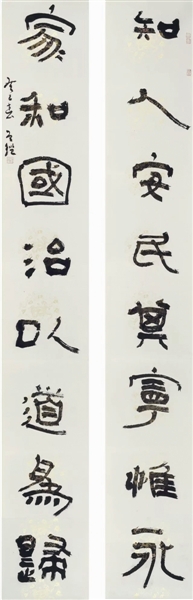 知人安民奠寧惟永
家和國治以道為歸